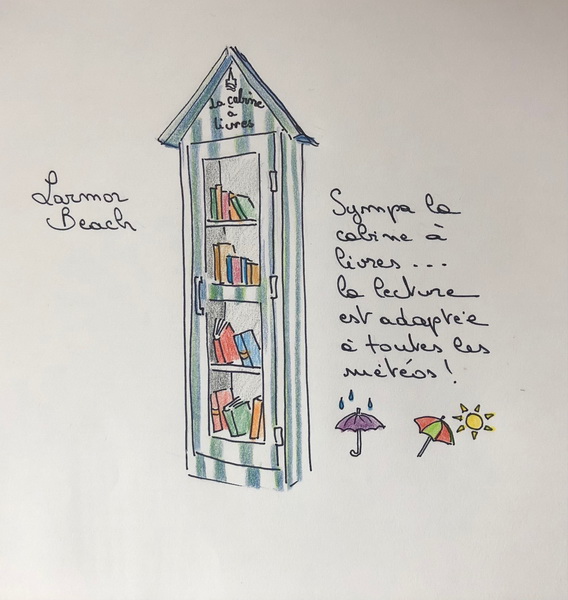 La cabine
à
livres
Larmor
Beach
Sympa la
cabine à
livres...
la lecture
est adaptée
à toutes les
météos!